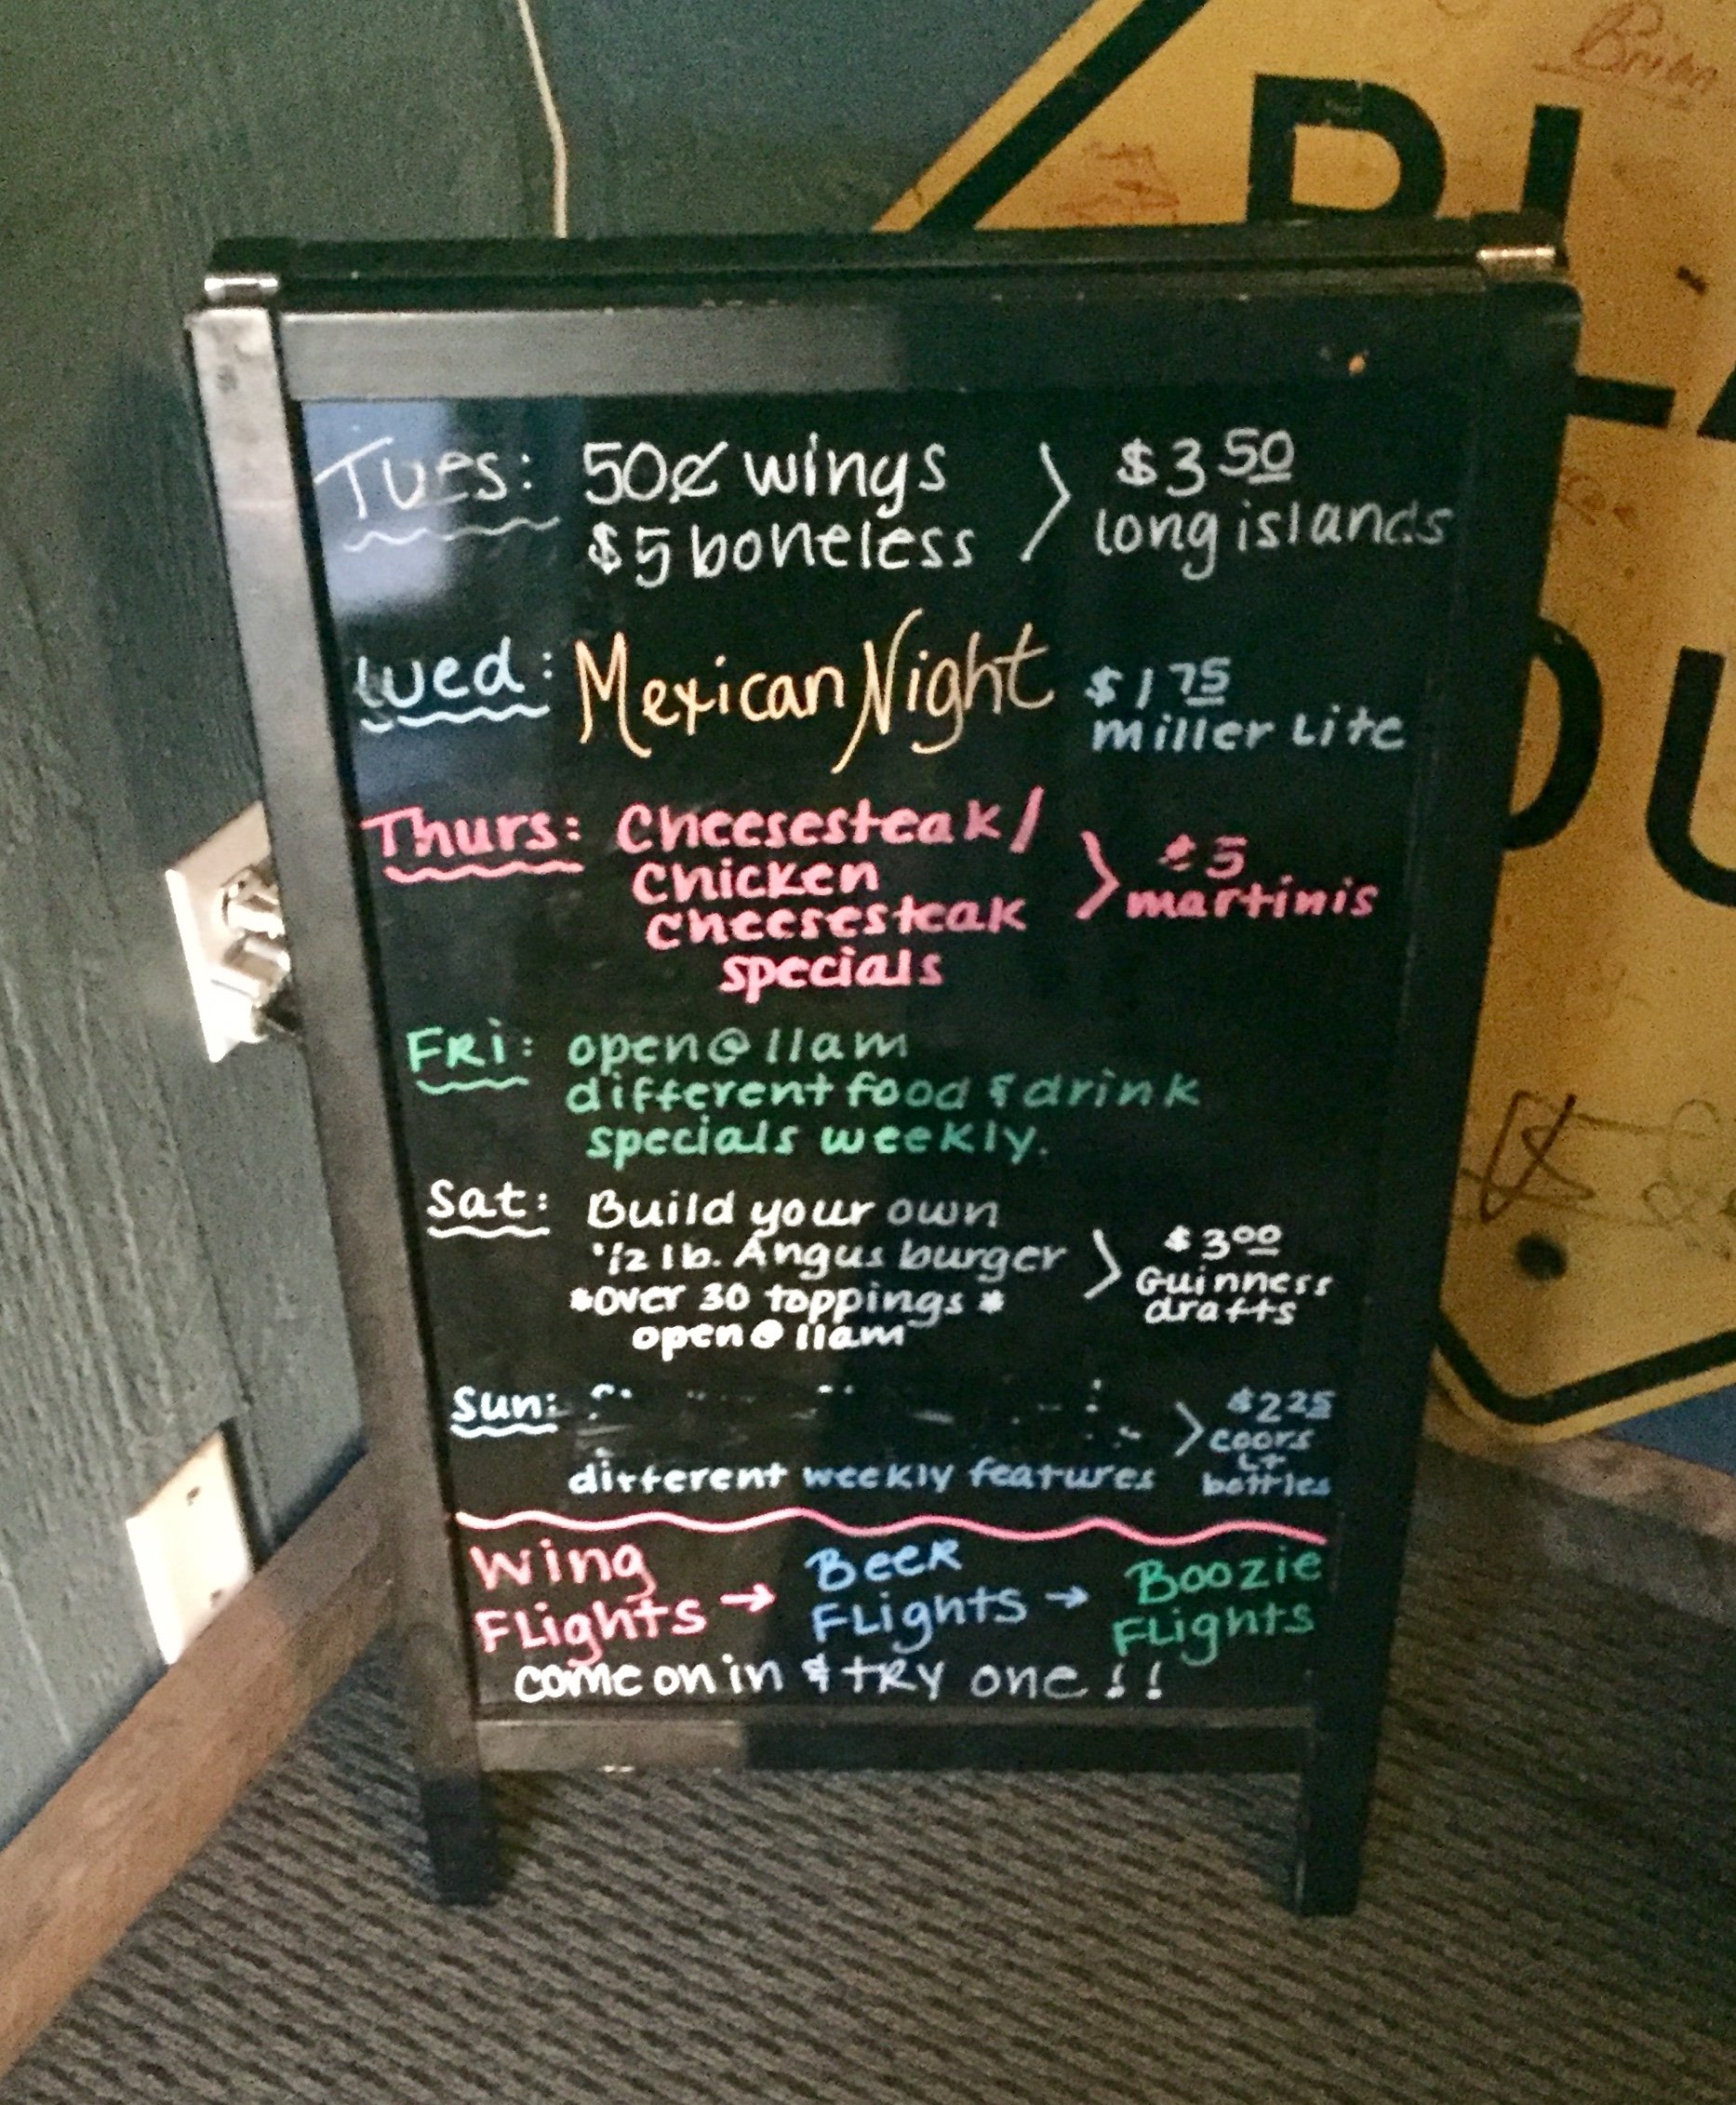 Tues: 50¢ wings
$5 boneless
$3 50
long islands
Wed: Mexican Night
$1 75
miller Lite
Thurs: Cheesesteak/
Chicken
Cheesesteak
specials
$5
martinis
FRi: open @ 11am
different food & drink
specials weekly.
Sat: Build your own
1/2 lb. Angus burger
*over 30 toppings*
open @ 11am
$3 00
Guinness
drafts
Sun:
different weekly features
$2 25
coors
Lt
bottles
Wing
Flights →
Beer
Flights →
Boozie
Flights
come on in & try one!!
Brian